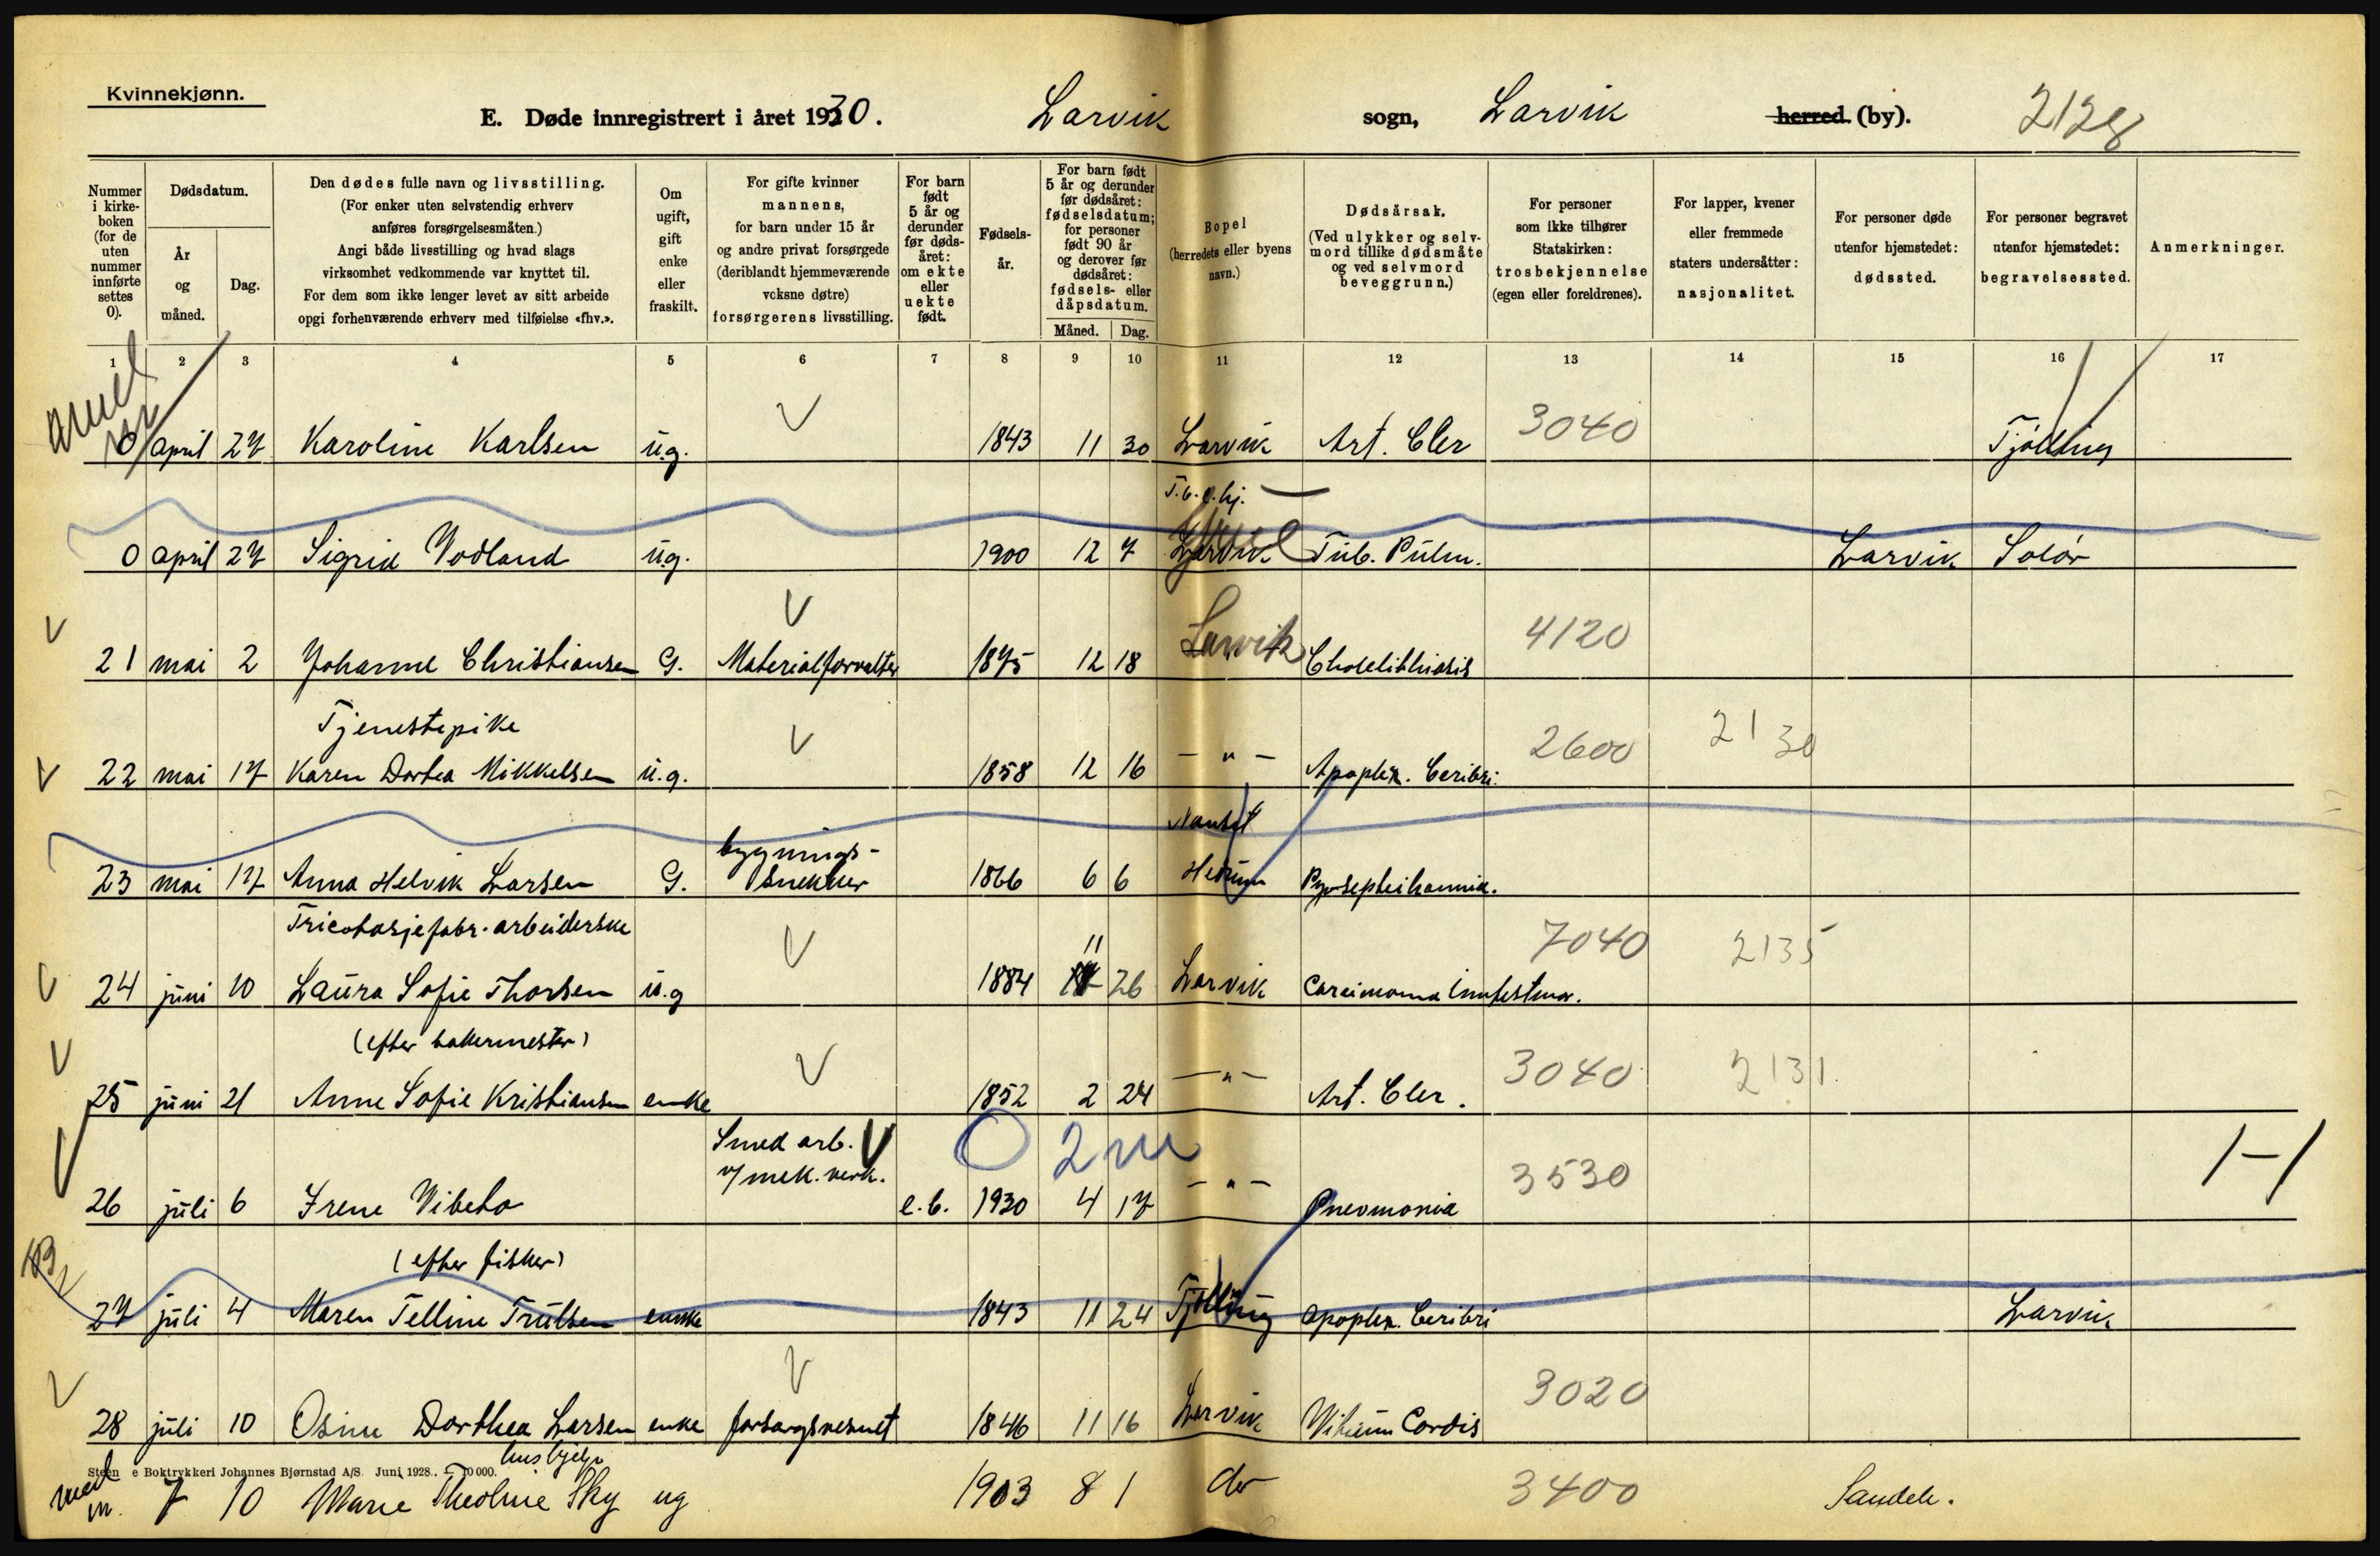 Kvinnekjønn.
E. Døde innregistrert i året 1930. Larvik sogn, Larvik herred (by). 2128
Nummer i kirke-boken (for de uten nummer innførte settes 0).
Dødsdatum.
År og måned.
Dag.
Den dødes fulle navn og livsstilling.
(For enker uten selvstendig erhverv
anføres forsørgelsesmåten.)
Angi både livsstilling og hvad slags
virksomhet vedkommende var knyttet til.
For dem som ikke lenger levet av sitt arbeide
opgi forhenværende erhverv med tilføielse «fhv.».
Om ugift, gift enke eller fraskilt.
For gifte kvinner
mannens,
for barn under 15 år
og andre privat forsørgede
(deriblandt hjemmeværende
voksne døtre)
forsørgerens livsstilling.
For barn født 5 år og derunder før døds-året: om ekte eller uekte født.
Fødsels-år.
For barn født 5 år og derunder før dødsåret: fødselsdatum; for personer født 90 år og derover før dødsåret: fødsels- eller dåpsdatum.
Måned. Dag.
Bopel (herredets eller byens navn.)
Dødsårsak.
(Ved ulykker og selv-
mord tillike dødsmåte
og ved selvmord
beveggrunn.)
For personer som ikke tilhører Statskirken: trosbekjennelse (egen eller foreldrenes).
For lapper, kvener eller fremmede staters undersåtter: nasjonalitet.
For personer døde utenfor hjemstedet: dødssted.
For personer begravet utenfor hjemstedet: begravelsessted.
Anmerkninger.
1 2 3 4 5 6 7 8 9 10 11 12 13 14 15 16 17
0 april 27 Karoline Karlsen u.g. V 1843 11 30 Larvik Art. Cler 3040 Tjølling
T.b.c.hj. —
0 april 27 Sigrid Vodland u.g. 1900 12 7 Larvik Tub. Pulm. Larvik Solør
V V
21 mai 2 Johanne Christiansen G. Materialforvalter 1875 12 18 Larvik Cholelithiasis 4120
Tjenestepike
V 22 mai 17 Karen Dortea Mikkelsen u.g. V 1858 12 16 — " — Apoplex. Ceribri. 2600 2130
bygnings- Nanset
23 mai 17 Anna Helvik Larsen G. Snekker 1866 6 6 Hedrum Pyosepticharmia.
Tricotasjefabr. arbeiderske
V 24 juni 10 Laura Sofie Thorsen u.g V 1884 11 26 Larvik Carcinoma Inntestinor. 7040 2135
(efter bakermester)
V 25 juni 21 Anne Sofie Kristiansen enke V 1852 2 24 — " — Art. Cler. 3040 2131
Smed arb. V 0 2 m
v/ mek. verk.
V 26 juli 6 Irene Vibeto e.b. 1930 4 17 — " — Pneomonia 3530 1-1
(efter fisker)
27 juli 4 Maren Telline Trulsen enke 1843 11 24 Tjølling Apoplex. Ceribri Larvik
V V
28 juli 10 Osine Dorthea Larsen enke forsorgsvesenet 1846 11 16 Larvik Vitium Cordis 3020
Steen e Boktrykkeri Johannes Bjørnstad A/S. Juni 1928. — 10 000.
hushjelp
7 10 Marie Theoline Sky ug 1903 8 1 do 3400 Sandeh.